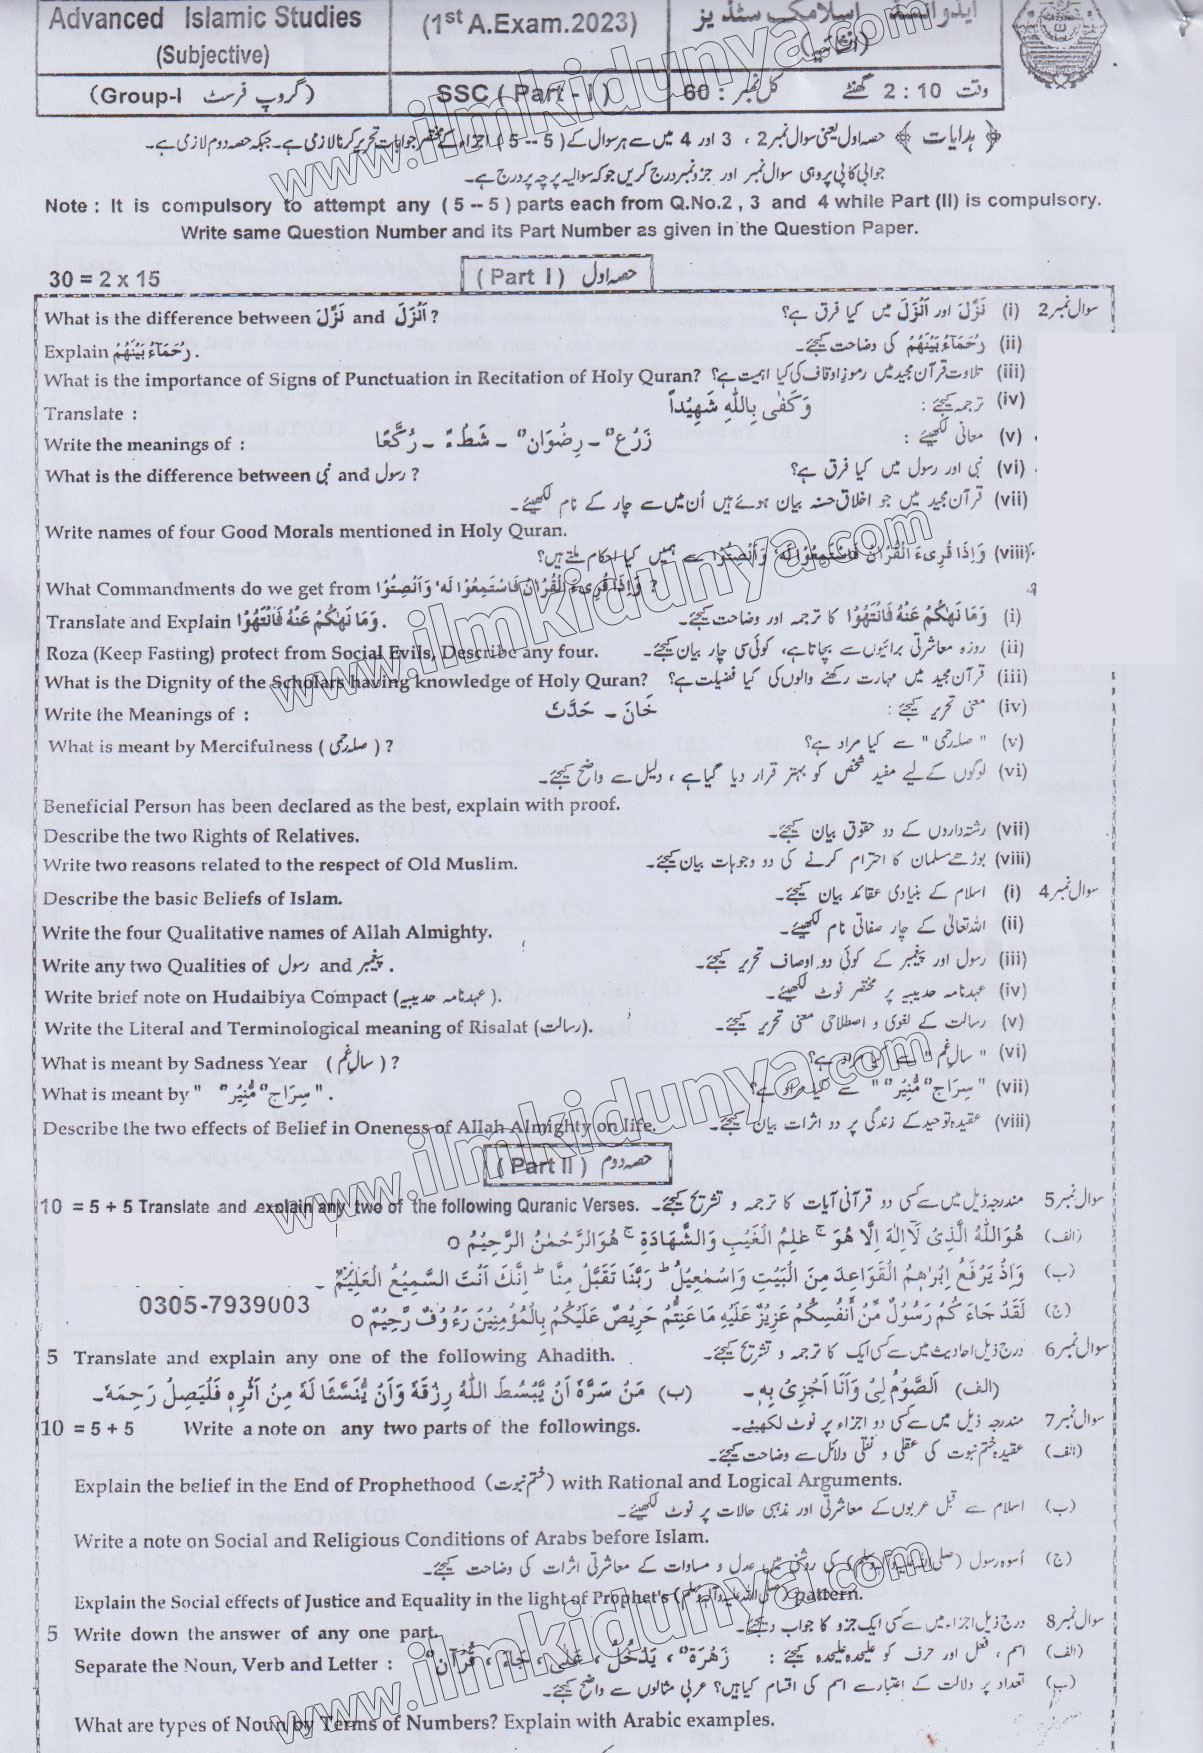 Advanced Islamic Studies (1st A.Exam.2023) ایڈوانسڈ اسلامک سٹڈیز
(Subjective) (انشائیہ)
(Group-I گروپ فرسٹ) SSC ( Part - I ) کل نمبر : 60 وقت 2 : 10 گھنٹے
﴿ ہدایات ﴾ حصہ اول یعنی سوال نمبر 2 ، 3 اور 4 میں سے ہر سوال کے ( 5 -- 5 ) اجزاء کے مختصر جوابات تحریر کرنا لازمی ہے۔ جبکہ حصہ دوم لازمی ہے۔
جوابی کاپی پر وہی سوال نمبر اور جزو نمبر درج کریں جو کہ سوالیہ پرچہ پر درج ہے۔
Note : It is compulsory to attempt any ( 5 -- 5 ) parts each from Q.No.2 , 3 and 4 while Part (II) is compulsory.
Write same Question Number and its Part Number as given in the Question Paper.
30 = 2 x 15 ( Part I ) حصہ اول
What is the difference between نَزَّلَ and اَنْزَلَ ? سوال نمبر 2 (i) نَزَّلَ اور اَنْزَلَ میں کیا فرق ہے؟
Explain رُحَمَآءُ بَيْنَهُمْ . (ii) رُحَمَآءُ بَيْنَهُمْ کی وضاحت کیجئے۔
What is the importance of Signs of Punctuation in Recitation of Holy Quran? (iii) تلاوت قرآن مجید میں رموز اوقاف کی کیا اہمیت ہے؟
Translate : وَكَفٰى بِاللّٰهِ شَهِيْدًا (iv) ترجمہ کیجئے :
Write the meanings of : زَرْع" ۔ رِضْوَان" ۔ شَطْءَ ۔ رُكَّعًا (v) معانی لکھیئے :
What is the difference between نبی and رسول ? (vi) نبی اور رسول میں کیا فرق ہے؟
(vii) قرآن مجید میں جو اخلاق حسنہ بیان ہوئے ہیں اُن میں سے چار کے نام لکھیئے۔
Write names of four Good Morals mentioned in Holy Quran.
(viii) وَاِذَا قُرِیءَ الْقُرْاٰنُ فَاسْتَمِعُوْا لَهٗ وَاَنْصِتُوْا سے ہمیں کیا احکام ملتے ہیں؟
What Commandments do we get from وَاِذَا قُرِیءَ الْقُرْاٰنُ فَاسْتَمِعُوْا لَهٗ وَاَنْصِتُوْا ?
Translate and Explain وَمَا نَهٰىكُمْ عَنْهُ فَانْتَهُوْا . (i) وَمَا نَهٰىكُمْ عَنْهُ فَانْتَهُوْا کا ترجمہ اور وضاحت کیجئے۔
Roza (Keep Fasting) protect from Social Evils, Describe any four. (ii) روزہ معاشرتی برائیوں سے بچاتا ہے، کوئی سی چار بیان کیجئے۔
What is the Dignity of the Scholars having knowledge of Holy Quran? (iii) قرآن مجید میں مہارت رکھنے والوں کی کیا فضیلت ہے؟
Write the Meanings of : خَانَ ۔ حَدَّثَ (iv) معنی تحریر کیجئے :
What is meant by Mercifulness ( صلہ رحمی ) ? (v) " صلہ رحمی " سے کیا مراد ہے؟
(vi) لوگوں کے لیے مفید شخص کو بہتر قرار دیا گیا ہے ، دلیل سے واضح کیجئے۔
Beneficial Person has been declared as the best, explain with proof.
Describe the two Rights of Relatives. (vii) رشتہ داروں کے دو حقوق بیان کیجئے۔
Write two reasons related to the respect of Old Muslim. (viii) بوڑھے مسلمان کا احترام کرنے کی دو وجوہات بیان کیجئے۔
Describe the basic Beliefs of Islam. سوال نمبر 4 (i) اسلام کے بنیادی عقائد بیان کیجئے۔
Write the four Qualitative names of Allah Almighty. (ii) اللہ تعالیٰ کے چار صفاتی نام لکھیئے۔
Write any two Qualities of رسول and پیغمبر . (iii) رسول اور پیغمبر کے کوئی دو اوصاف تحریر کیجئے۔
Write brief note on Hudaibiya Compact (عہدنامہ حدیبیہ ). (iv) عہدنامہ حدیبیہ پر مختصر نوٹ لکھیئے۔
Write the Literal and Terminological meaning of Risalat (رسالت). (v) رسالت کے لغوی و اصطلاحی معنی تحریر کیجئے۔
What is meant by Sadness Year ( سالِ غم ) ? (vi) " سالِ غم " سے کیا مراد ہے؟
What is meant by " سِرَاج" مُّنِيْر" " . (vii) " سِرَاج" مُّنِيْر" " سے کیا مراد ہے؟
Describe the two effects of Belief in Oneness of Allah Almighty on life. (viii) عقیدہ توحید کے زندگی پر دو اثرات بیان کیجئے۔
( Part II ) حصہ دوم
10 = 5 + 5 Translate and explain any two of the following Quranic Verses. سوال نمبر 5 مندرجہ ذیل میں سے کسی دو قرآنی آیات کا ترجمہ و تشریح کیجئے۔
(الف) هُوَ اللّٰهُ الَّذِىْ لَآ اِلٰهَ اِلَّا هُوَ ۚ عٰلِمُ الْغَيْبِ وَالشَّهَادَةِ ۚ هُوَ الرَّحْمٰنُ الرَّحِيْمُ o
(ب) وَاِذْ يَرْفَعُ اِبْرٰهٖمُ الْقَوَاعِدَ مِنَ الْبَيْتِ وَاِسْمٰعِيْلُ ط رَبَّنَا تَقَبَّلْ مِنَّا ط اِنَّكَ اَنْتَ السَّمِيْعُ الْعَلِيْمُ
0305-7939003
(ج) لَقَدْ جَآءَ كُمْ رَسُوْلٌ مِّنْ اَنْفُسِكُمْ عَزِيْزٌ عَلَيْهِ مَا عَنِتُّمْ حَرِيْصٌ عَلَيْكُمْ بِالْمُؤْمِنِيْنَ رَءُوْفٌ رَّحِيْمٌ o
5 Translate and explain any one of the following Ahadith. سوال نمبر 6 درج ذیل احادیث میں سے کسی ایک کا ترجمہ و تشریح کیجئے۔
(الف) اَلصَّوْمُ لِىْ وَاَنَا اَجْزِىْ بِهٖ۔ (ب) مَنْ سَرَّهٗ اَنْ يَّبْسُطَ اللّٰهُ رِزْقَهٗ وَاَنْ يُّنْسَئَا لَهٗ مِنْ اَثَرِهٖ فَلْيَصِلْ رَحِمَهٗ۔
10 = 5 + 5 Write a note on any two parts of the followings. سوال نمبر 7 مندرجہ ذیل میں سے کسی دو اجزاء پر نوٹ لکھیئے۔
(الف) عقیدہ ختم نبوت کی عقلی و نقلی دلائل سے وضاحت کیجئے۔
Explain the belief in the End of Prophethood (ختم نبوت) with Rational and Logical Arguments.
(ب) اسلام سے قبل عربوں کے معاشرتی اور مذہبی حالات پر نوٹ لکھیئے۔
Write a note on Social and Religious Conditions of Arabs before Islam.
(ج) اُسوہ رسول (صلی اللہ علیہ وآلہ وسلم) کی روشنی میں عدل و مساوات کے معاشرتی اثرات کی وضاحت کیجئے۔
Explain the Social effects of Justice and Equality in the light of Prophet's (صلی اللہ علیہ وآلہ وسلم) pattern.
سوال نمبر 8 درج ذیل اجزاء میں سے کسی ایک جزو کا جواب دیجئے۔
5 Write down the answer of any one part.
Separate the Noun, Verb and Letter : زَهْرَة" ، يَدْخُلُ ، عَلٰى ، جَآءَ ، قُرْاٰن" (الف) اسم ، فعل اور حرف کو علیحدہ علیحدہ کیجئے :
(ب) تعداد پر دلالت کے اعتبار سے اسم کی اقسام کیا ہیں؟ عربی مثالوں سے واضح کیجئے۔
What are types of Noun by Terms of Numbers? Explain with Arabic examples.
www.ilmkidunya.com
www.ilmkidunya.com
www.ilmkidunya.com
www.ilmkidunya.com